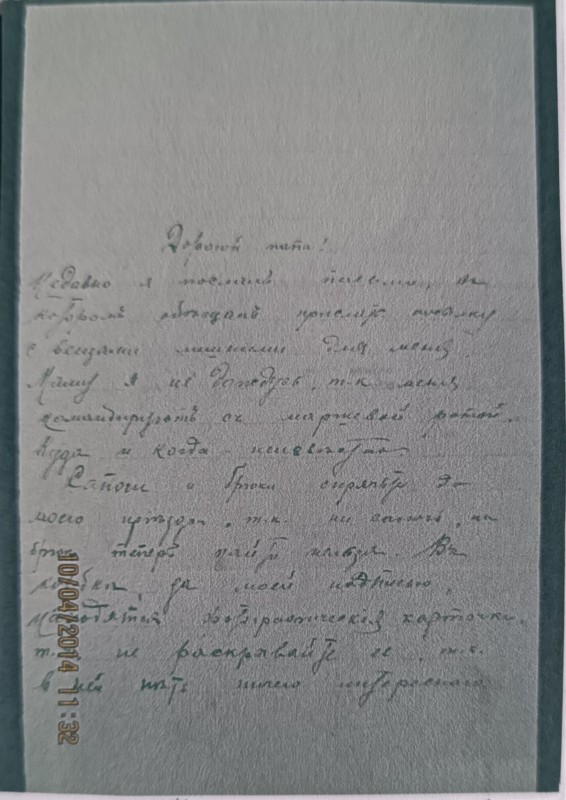 Дорогой папа!
Недавно я послалъ письмо, въ
которомъ обещалъ прислать посылку
с вещами лишними для меня.
Маму я не дождусь, т.к. меня
командируютъ съ маршевой ротой.
Куда и когда - неизвестно.
Сапоги и брюки спрячьте до
моего приезда, т.к. ни сапогъ, ни
брюкъ теперь найти нельзя. Въ
коробки, за моей надписью,
находятся фотографическия карточки.
не раскрывайте ее, т.к.
в ней нетъ ничего интереснаго
10/04/2014 11:32